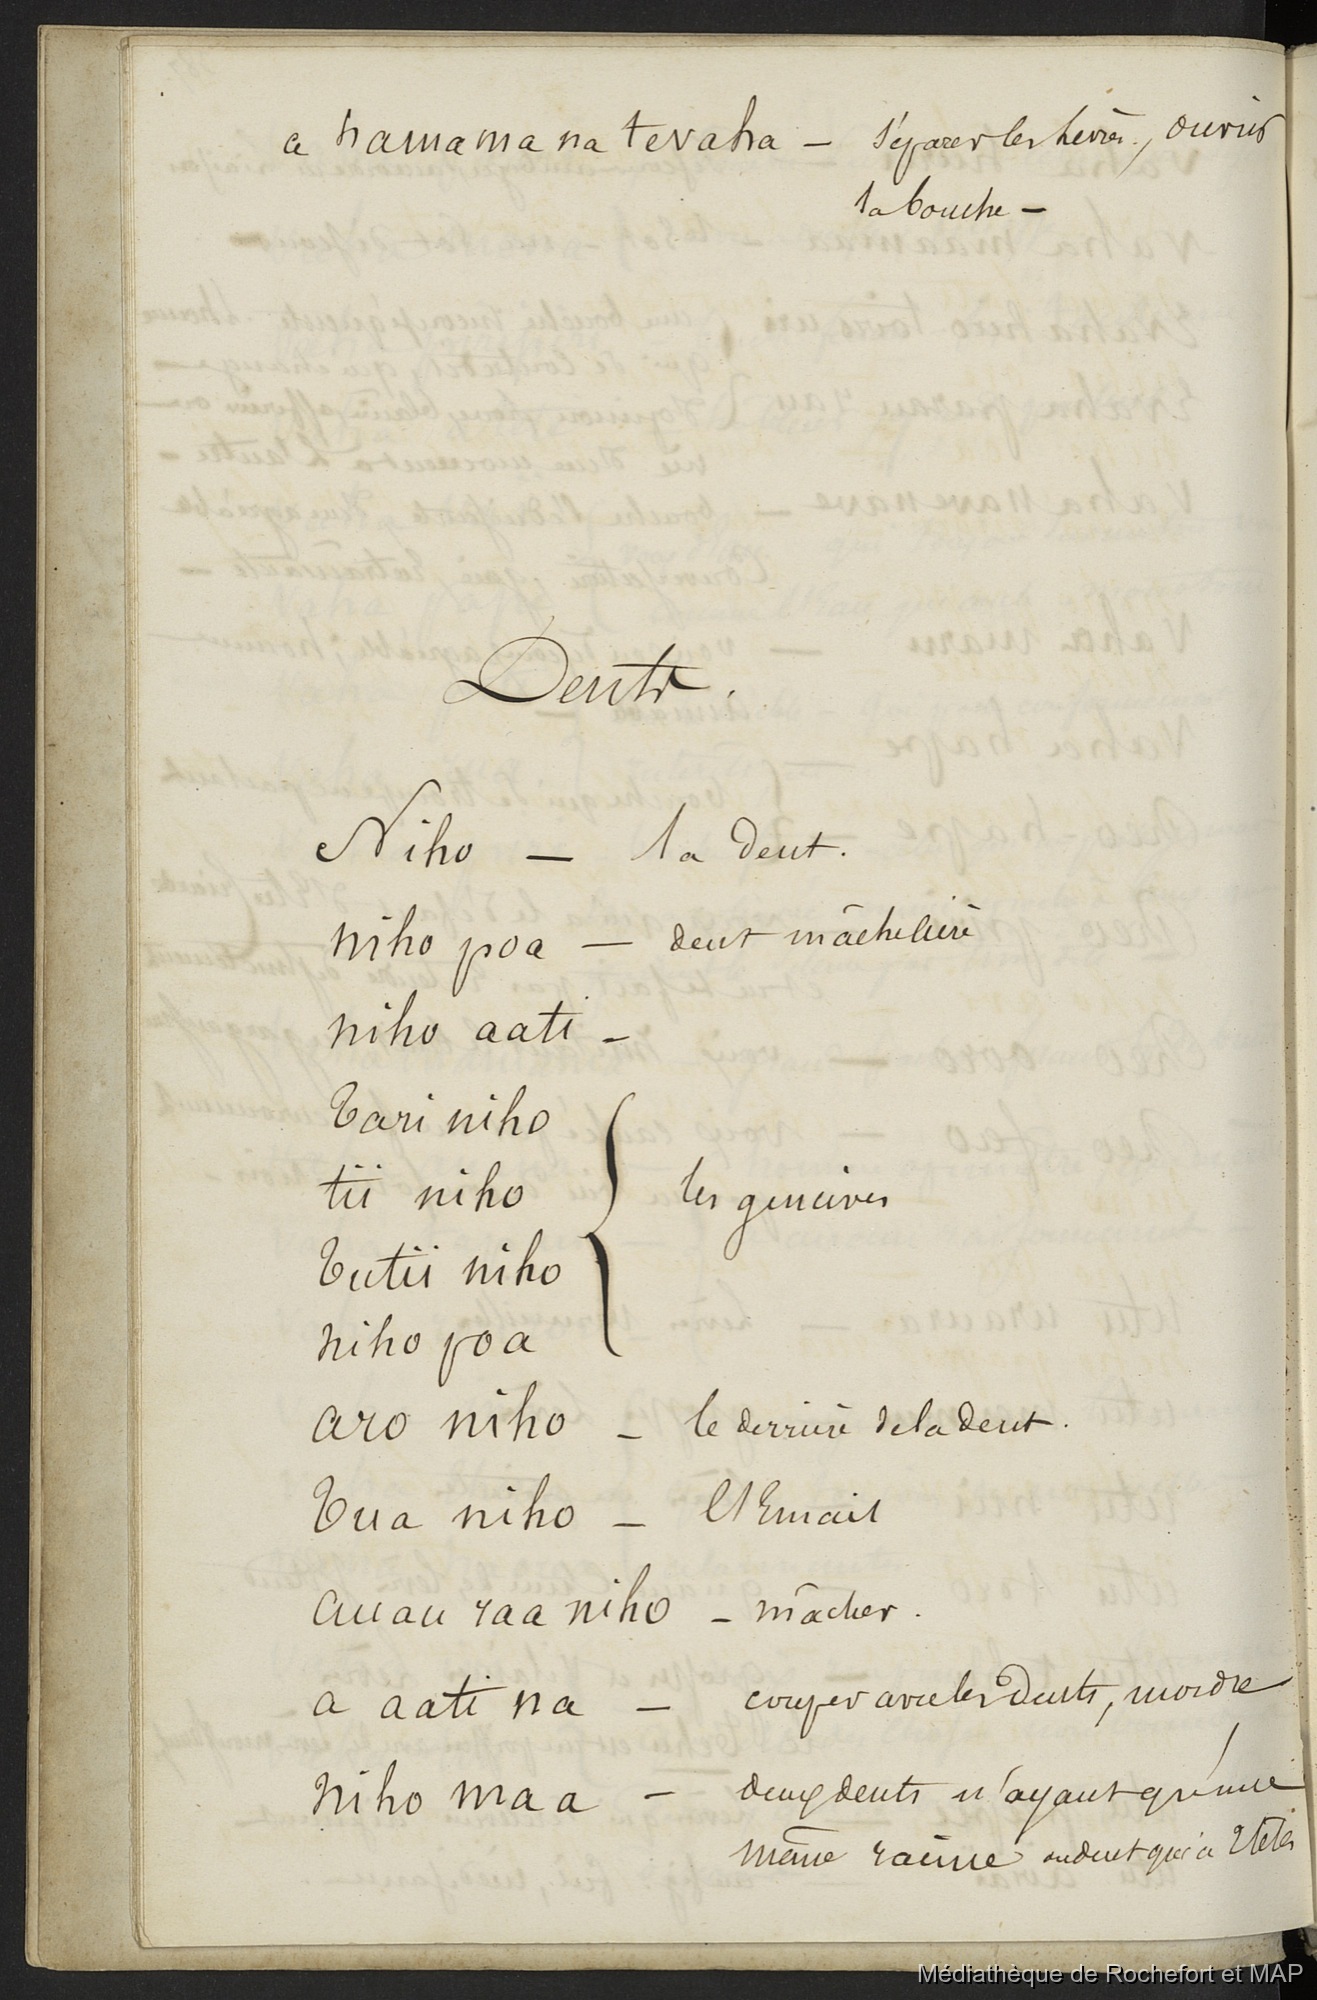 a hamama na te vaha – séparer les lèvres, ouvrir
la bouche –
Dents.
Niho – la dent.
niho poa – dent mâchelière
niho aati –
Tari niho
tii niho
Tutii niho
niho poa
les gencives
aro niho – le derrière de la dent.
Tua niho – l'Email
auau raa niho – mâcher.
a aati na – couper avec les dents, mordre
niho maa – deux dents n'ayant qu'une
même racine ou dent qui a 2 têtes
Médiathèque de Rochefort et MAP